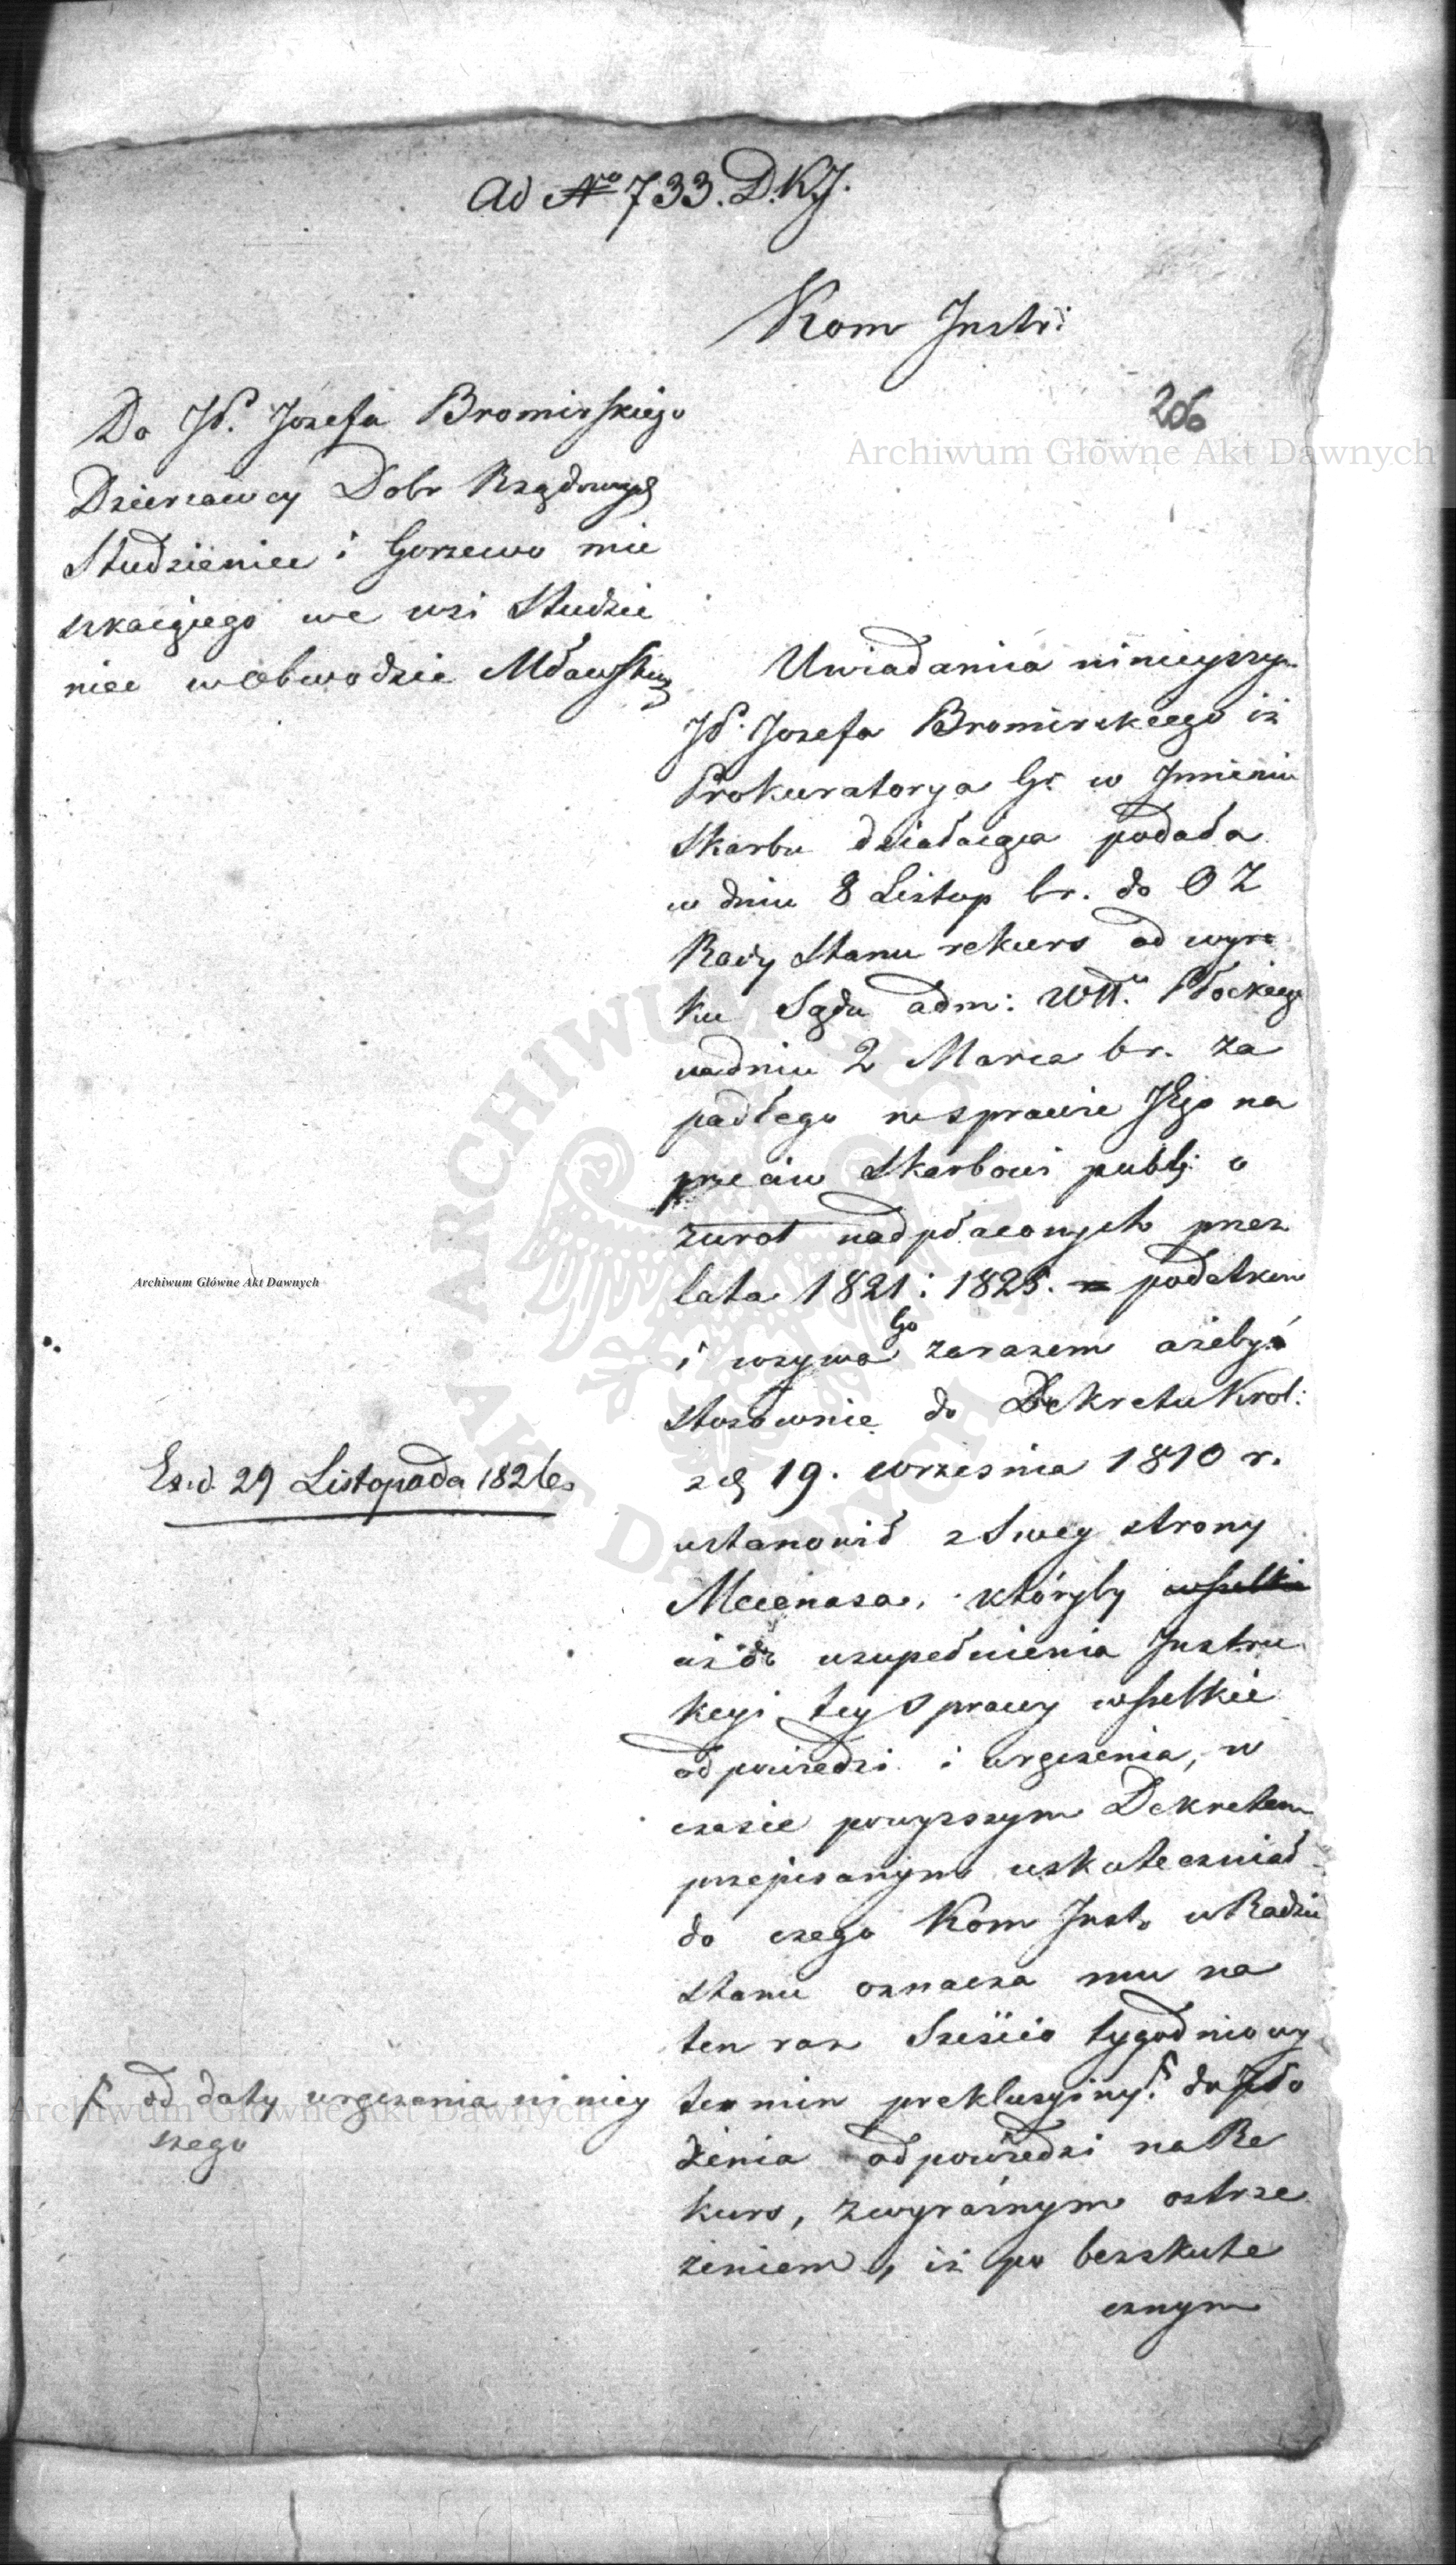 Ad Nro 733. D.K.J.
Kom Instr:
206
Do JP. Jozefa Bromirskiego
Dzierzawcy Dobr Rządowych
Studzieniec i Gorzewo mie
szkaiącego we wsi Studzie
niec w Obwodzie Mławskim
Uwiadamia ninieyszym
JP. Jozefa Bromirskiego iz
Prokuratorya Gl. w Jmieniu
Skarbu działaiąca podała
w dniu 8 Listop br. do O Z
Rady Stanu rekurs od wyro
ku Sądu adm: Wdtt. Płockiego
w dniu 2 Marca br. za
padłego w sprawie JEgo na
przeciw Skarbowi publ: o
zwrot nadpłaconych przez
lata 1821 i 1825. podatkow
i wzywa Go zarazem azeby
stosownie do Dekretu Krol:
z d 19. Września 1810 r.
Ex. d. 29 Listopada 1826
ustanowił z Swey strony
Mecenasa, któryby wszelkie
aż do uzupełnienia Jnstru
kcyi tey Sprawy wszelkie
odpowiedzi i wręczenia, w
czasie powyzszym Dekretem
przepisanym uskuteczniał
do czego Kom Inst. w Radzie
stanu oznacza mu na
ten raz Sześcio tygodniowy
termin preklusyiny do zło
żenia odpowiedzi na Re
kurs, z wyraźnym ostrze
żeniem, iż po bezskute
cznym
od daty wręczenia niniey
szego
Archiwum Główne Akt Dawnych
Archiwum Główne Akt Dawnych
Archiwum Główne Akt Dawnych
ARCHIWUM GŁÓWNE AKT DAWNYCH